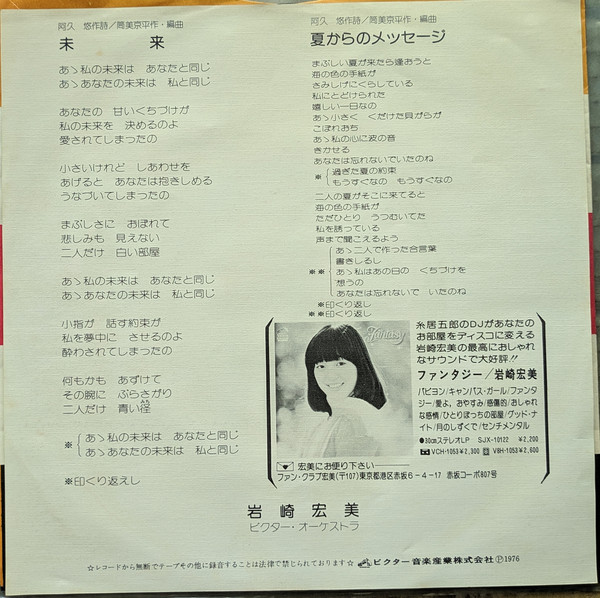 阿久　悠作詩／筒美京平作・編曲
未　来
あゝ私の未来は　あなたと同じ
あゝあなたの未来は　私と同じ
あなたの　甘いくちづけが
私の未来を　決めるのよ
愛されてしまったの
小さいけれど　しあわせを
あげると　あなたは抱きしめる
うなづいてしまったの
まぶしさに　おぼれて
悲しみも　見えない
二人だけ　白い部屋
あゝ私の未来は　あなたと同じ
あゝあなたの未来は　私と同じ
小指が　話す約束が
私を夢中に　させるのよ
酔わされてしまったの
何もかも　あずけて
その腕に　ぶらさがり
二人だけ　青い径
みち
※ あゝ私の未来は　あなたと同じ
あゝあなたの未来は　私と同じ
※印くり返えし
阿久　悠作詩／筒美京平作・編曲
夏からのメッセージ
まぶしい夏が来たら逢おうと
海の色の手紙が
さみしげにくらしている
私にとどけられた
嬉しい一日なの
あゝ小さく　くだけた貝がらが
こぼれおち
あゝ私の心に波の音
きかせる
あなたは忘れないでいたのね
※ 過ぎた夏の約束
もうすぐなの　もうすぐなの
二人の夏がそこに来てると
海の色の手紙が
ただひとり　うつむいてた
私を誘っている
声まで聞こえるよう
※※ あゝ二人で作った合言葉
書きしるし
あゝ私はあの日の　くちづけを
想うの
あなたは忘れないで　いたのね
※印くり返し
※※印くり返し
Fantasy
糸居五郎のDJがあなたの
お部屋をディスコに変える
岩崎宏美の最高におしゃれ
なサウンドで大好評!!
ファンタジー／岩崎宏美
パピヨン/キャンパス・ガール/ファンタ
ジー/愛よ，おやすみ/感傷的/おしゃれ
な感情/ひとりぼっちの部屋/グッド・ナ
イト/月のしずくで/センチメンタル
●30cmステレオLP　SJX-10122　¥2,200
VCH-1053¥2,300　VBH-1053¥2,600
宏美にお便り下さい
ファン・クラブ宏美(〒107)東京都港区赤坂6－4－17 赤坂コーポ807号
岩　崎　宏　美
ビクター・オーケストラ
☆レコードから無断でテープその他に録音することは法律で禁じられております☆
ビクター音楽産業株式会社 Ⓟ1976